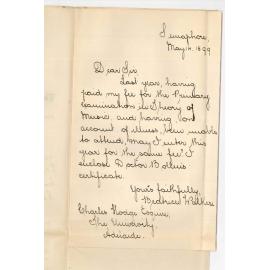 Semaphore,
May 14. 1899
Dear Sir
Last year, having
paid my fee for the Primary
Examination in Theory of
Music, and having, on
account of illness, been unable
to attend, may I enter this
year for the same fee? I
enclose Doctor Bollen's
certificate.
Yours faithfully,
Charles Hodge Esquire,
The University
Adelaide.